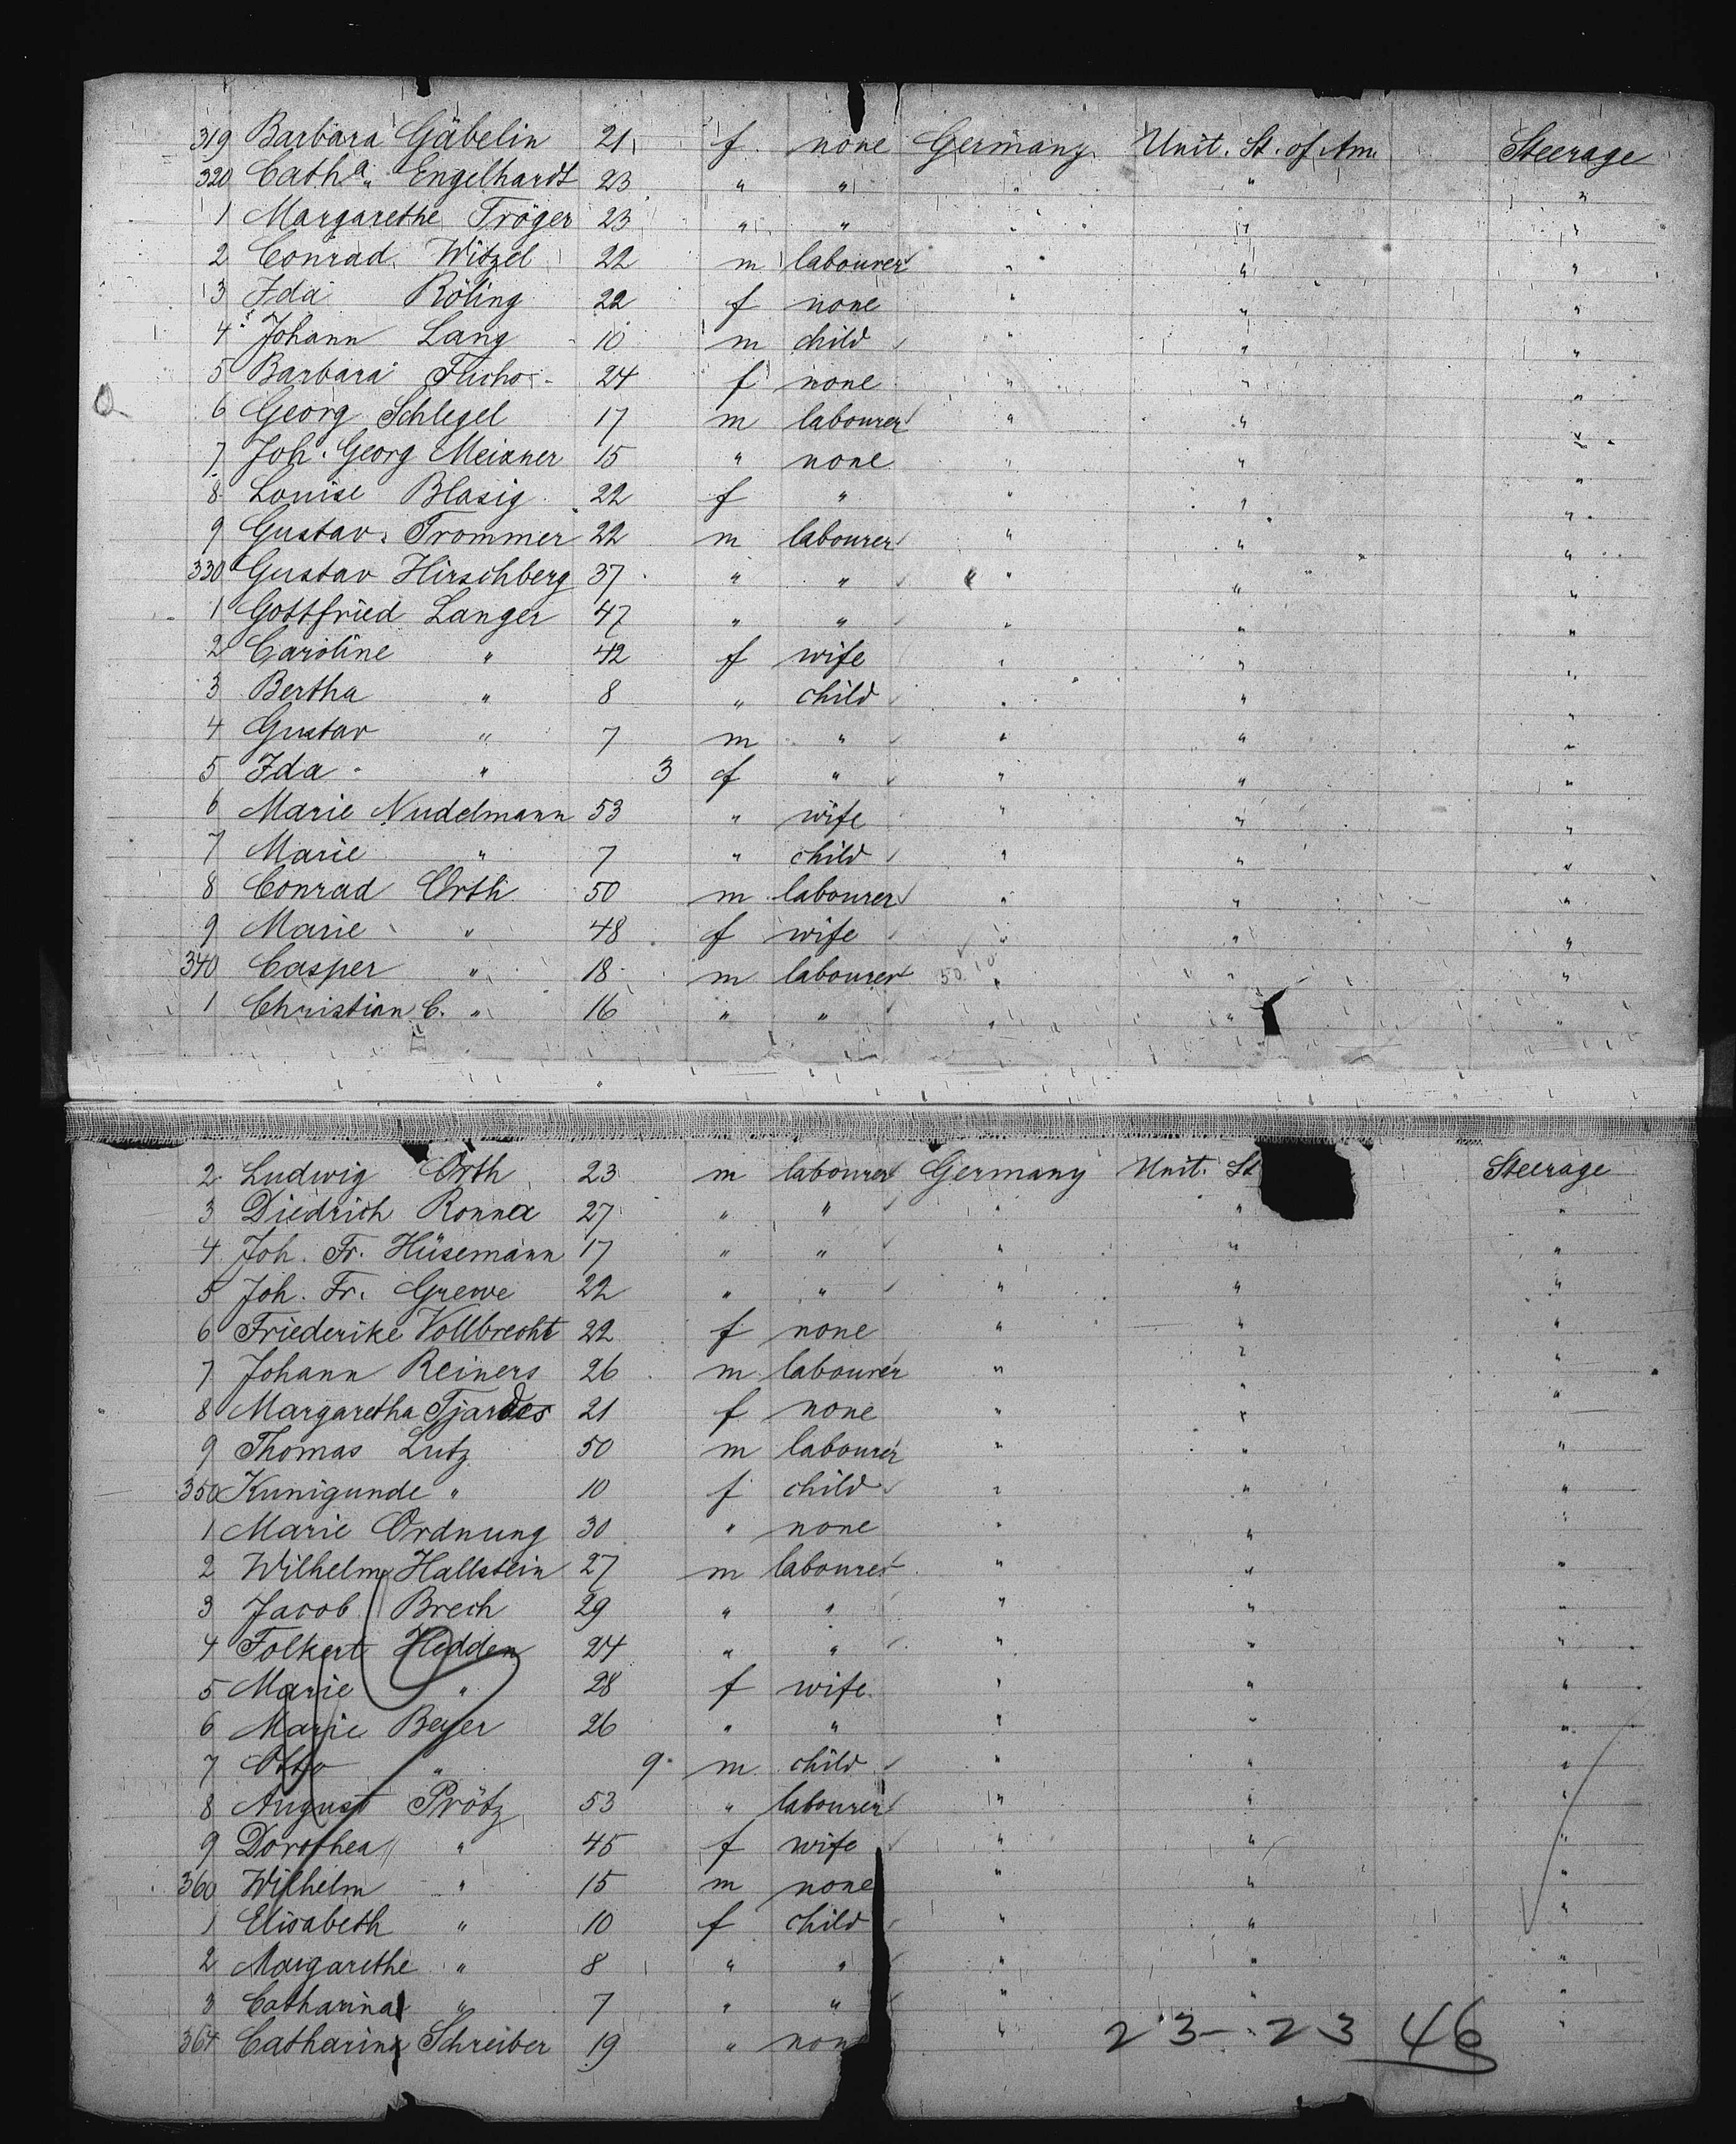 319 Barbara Gäbelin 21 f. none Germany Unit. St. of Am. Steerage
320 Cath.a Engelhardt 23 " " " " "
1 Margarethe Tröger 23 " " " " "
2 Conrad Witzel 22 m labourer " " "
3 Ida Röling 22 f none " " "
4 Johann Lang 10 m child " " "
5 Barbara 24 f none " " "
6 Georg Schlegel 17 m labourer " " "
7 Joh. Georg Meixner 15 " none " " "
8 Louise Blasig 22 f " " " "
9 Gustav Trommer 22 m labourer " " "
330 Gustav Hirschberg 37 " " " " "
1 Gottfried Langer 47 " " " " "
2 Caroline " 42 f wife " " "
3 Bertha " 8 " child " " "
4 Gustav " 7 m " " " "
5 Ida " 3 f " " " "
6 Marie Nudelmann 53 " wife " " "
7 Marie " 7 " child " " "
8 Conrad Orth 50 m labourer " " "
9 Marie " 48 f wife " " "
340 Casper " 18 m labourer " " "
1 Christian C. " 16 " " " " "
2 Ludwig Orth 23 m labourer Germany Unit. St Steerage
3 Diedrich 27 " " " " "
4 Joh. Fr. Hüsemann 17 " " " " "
5 Joh. Fr. Grewe 22 " " " " "
6 Friederike Vollbrecht 22 f none " " "
7 Johann Reiners 26 m labourer " " "
8 Margaretha Tjardes 21 f none " " "
9 Thomas Lutz 50 m labourer " " "
350 Kunigunde " 10 f child " " "
1 Marie Ordnung 30 " none " " "
2 Wilhelm Hallstein 27 m labourer " " "
3 Jacob Brech 29 " " " " "
4 Folkert Hedden 24 " " " " "
5 Marie " 28 f wife " " "
6 Marie Beyer 26 " " " " "
7 Otto " 9 m child " " "
8 August Prötz 53 " labourer " " "
9 Dorothea " 45 f wife " " "
360 Wilhelm " 15 m none " " "
1 Elisabeth " 10 f child " " "
2 Margarethe " 8 " " " " "
3 Catharina " 7 " " " " "
364 Catharina Schreiber 19 " non " "
23 - 23 46